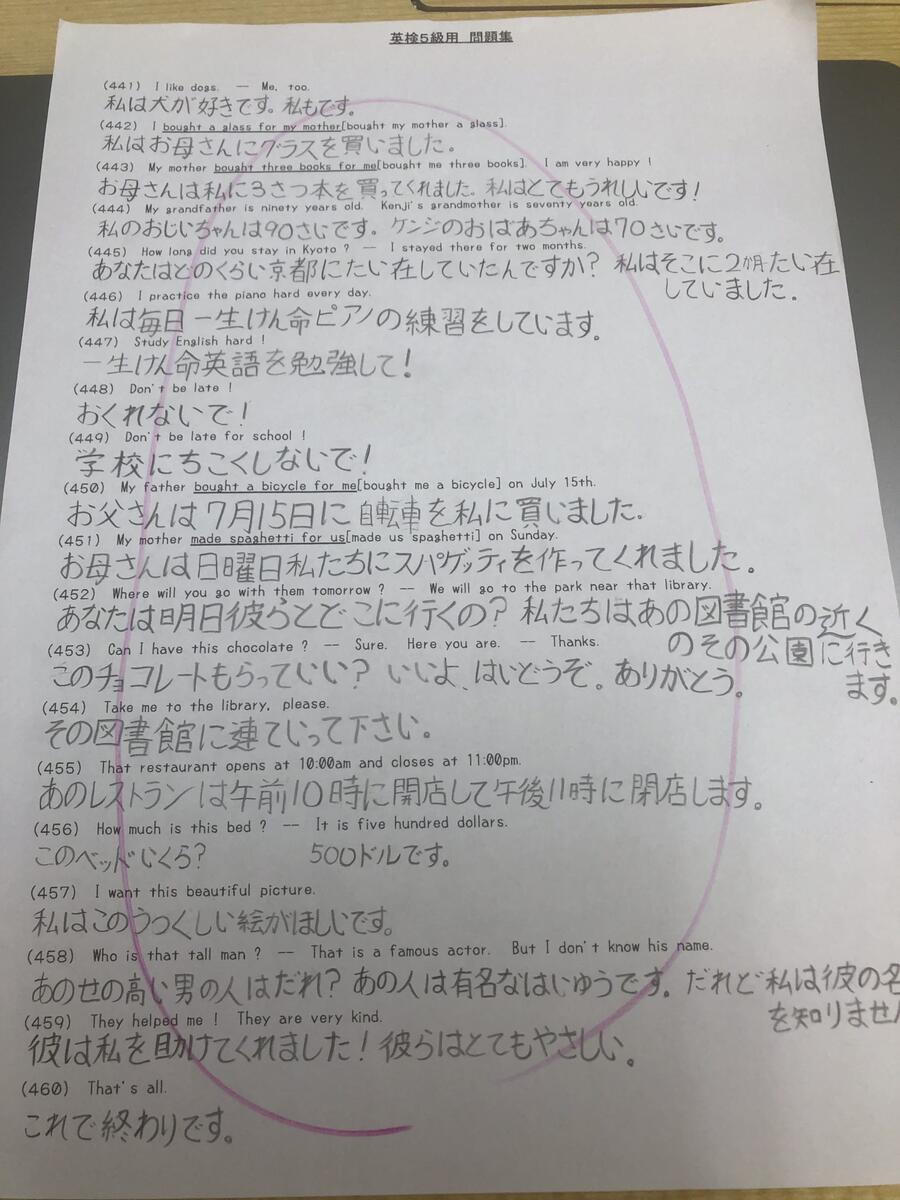 英検5級用 問題集
(441) I like dogs. — Me, too.
私は犬が好きです。私もです。
(442) I bought a glass for my mother[bought my mother a glass].
私はお母さんにグラスを買いました。
(443) My mother bought three books for me[bought me three books]. I am very happy !
お母さんは私に3さつ本を買ってくれました。私はとてもうれしいです!
(444) My grandfather is ninety years old. Kenji's grandmother is seventy years old.
私のおじいちゃんは90さいです。ケンジのおばあちゃんは70さいです。
(445) How long did you stay in Kyoto ? — I stayed there for two months.
あなたはどのくらい京都にたい在していたんですか? 私はそこに2か月たい在
していました。
(446) I practice the piano hard every day.
私は毎日一生けん命ピアノの練習をしています。
(447) Study English hard !
一生けん命英語を勉強して!
(448) Don't be late !
おくれないで!
(449) Don't be late for school !
学校にちこくしないで!
(450) My father bought a bicycle for me[bought me a bicycle] on July 15th.
お父さんは7月15日に自転車を私に買いました。
(451) My mother made spaghetti for us[made us spaghetti] on Sunday.
お母さんは日曜日私たちにスパゲッティを作ってくれました。
(452) Where will you go with them tomorrow ? -- We will go to the park near that library.
あなたは明日彼らとどこに行くの? 私たちはあの図書館の近く
のその公園に行き
ます。
(453) Can I have this chocolate ? -- Sure. Here you are. -- Thanks.
このチョコレートもらっていい? いいよ、はいどうぞ。ありがとう。
(454) Take me to the library, please.
その図書館に連ていって下さい。
(455) That restaurant opens at 10:00am and closes at 11:00pm.
あのレストランは午前10時に開店して午後11時に閉店します。
(456) How much is this bed ? -- It is five hundred dollars.
このベッドいくら? 500ドルです。
(457) I want this beautiful picture.
私はこのうつくしい絵がほしいです。
(458) Who is that tall man ? -- That is a famous actor. But I don't know his name.
あのせの高い男の人はだれ? あの人は有名なはいゆうです。だれど私は彼の名
を知りません
(459) They helped me ! They are very kind.
彼は私を助けてくれました! 彼らはとてもやさしい。
(460) That's all.
これで終わりです。